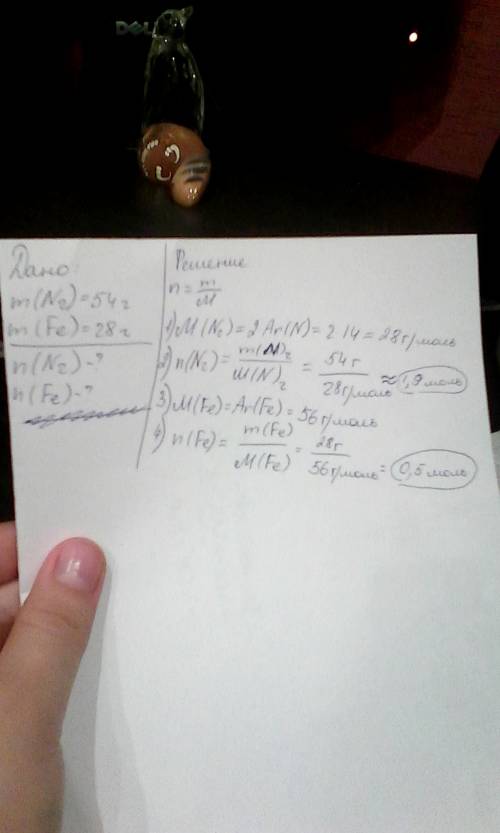 DELL
Дано:
m(N₂)=54г
m(Fe)=28г
n(N₂)-?
n(Fe)-?
Решение
n=m/M
1) M(N₂)=2Ar(N)=2·14=28г/моль
2) n(N₂)=m(N)₂/M(N)₂=54г/28г/моль≈1,9моль
3) M(Fe)=Ar(Fe)=56г/моль
4) n(Fe)=m(Fe)/M(Fe)=28г/56г/моль=0,5моль